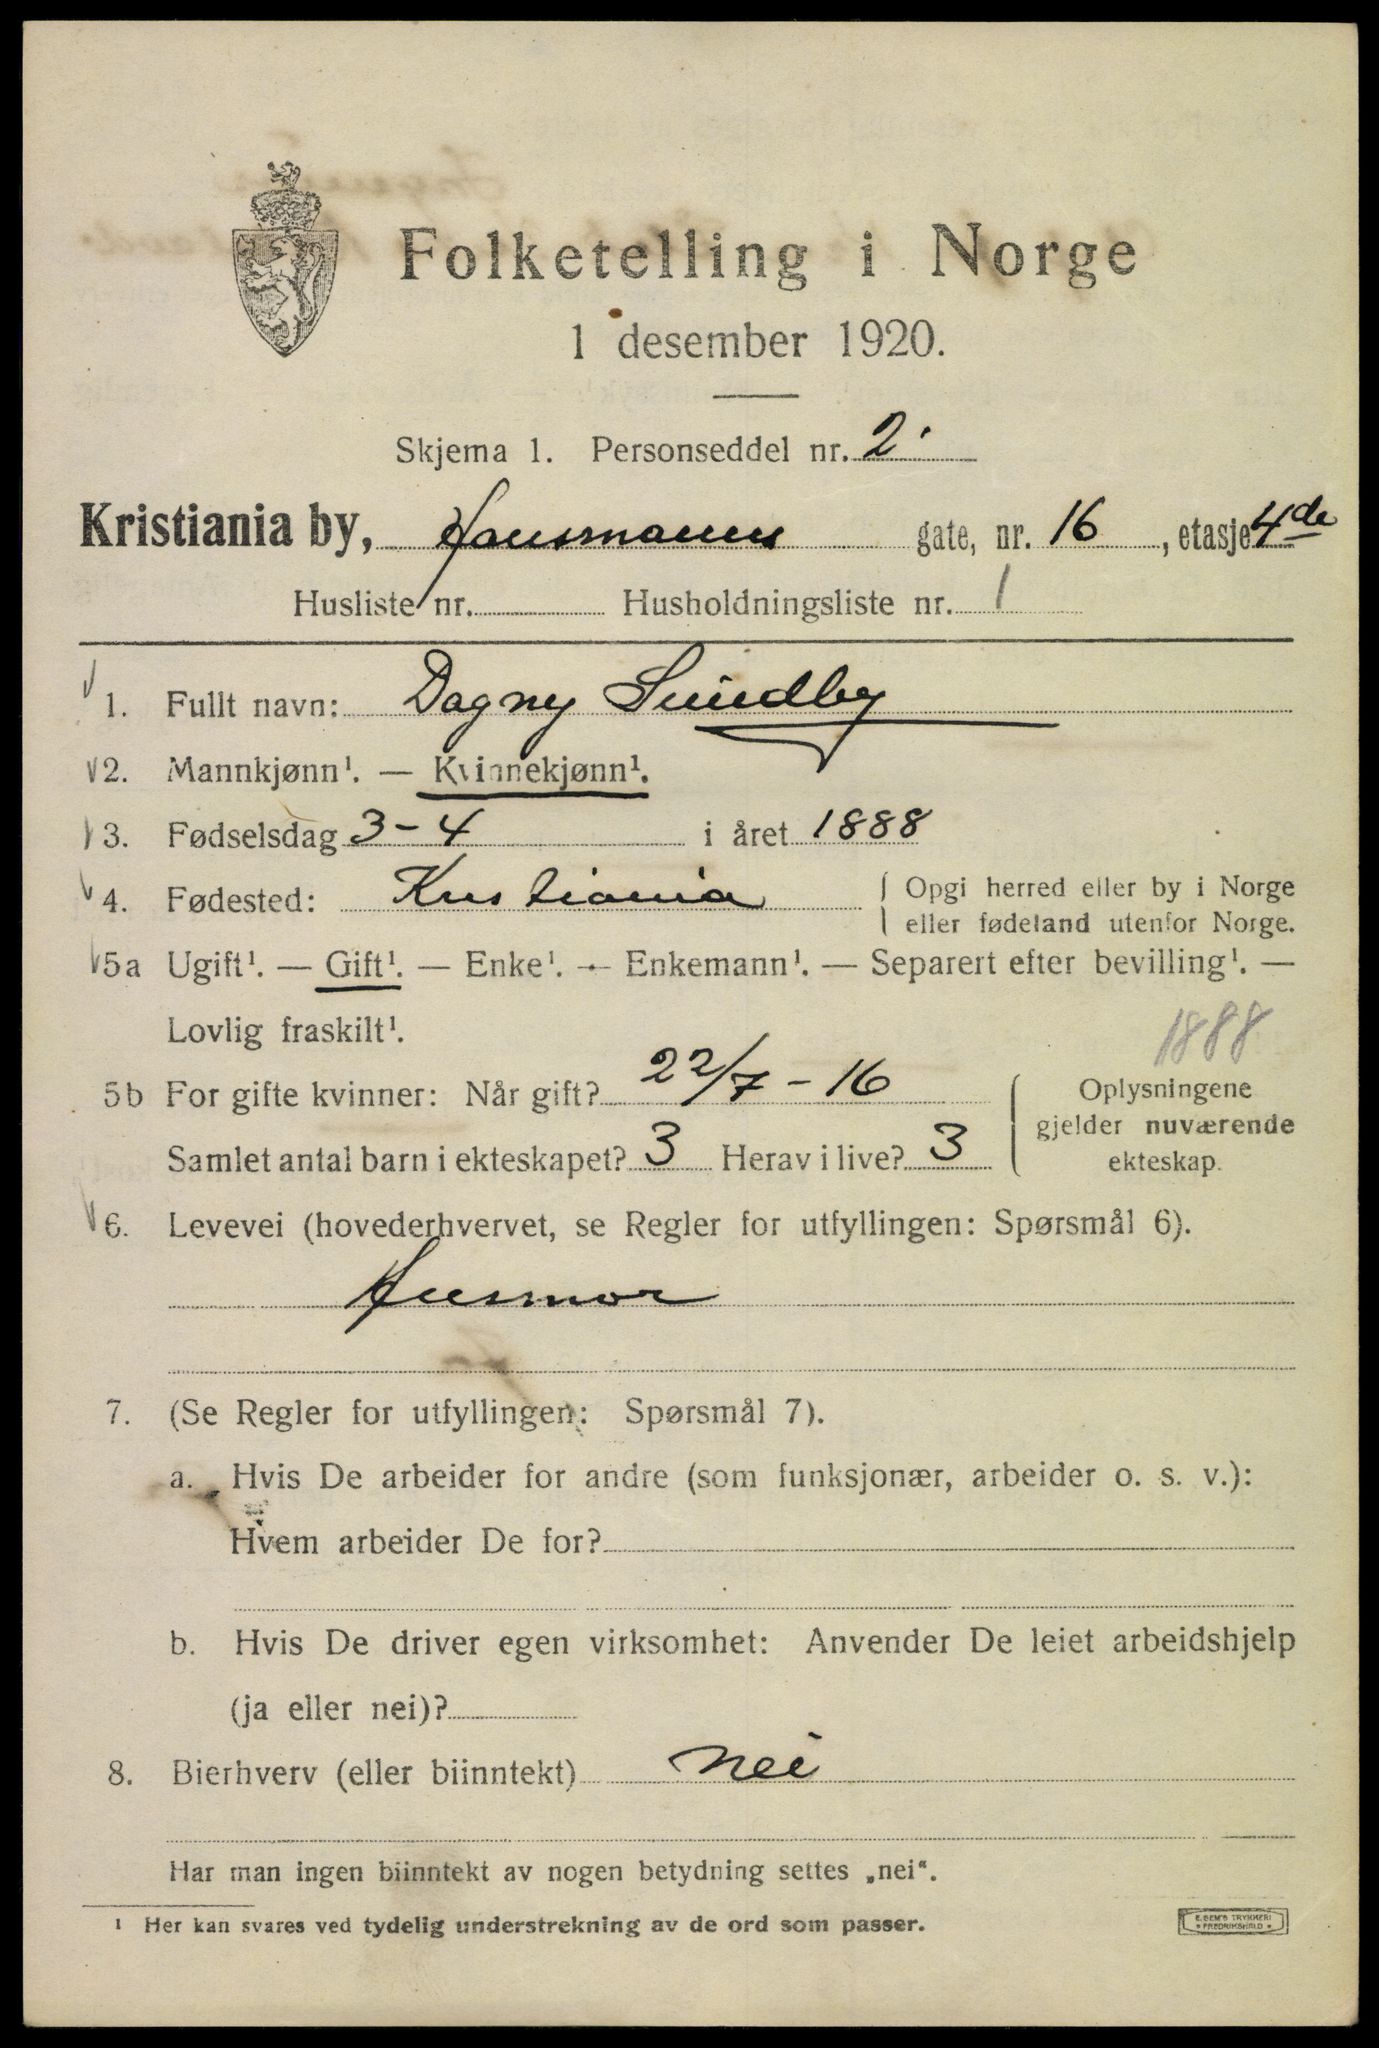 Folketelling i Norge
1 desember 1920.
Skjema 1. Personseddel nr. 2.
Kristiania by, Hausmanns gate, nr. 16, etasje 4de
Husliste nr. Husholdningsliste nr. 1
1. Fullt navn: Dagny Sundby
2. Mannkjønn¹. — Kvinnekjønn¹.
3. Fødselsdag 3-4 i året 1888
4. Fødested: Kristiania { Opgi herred eller by i Norge
eller fødeland utenfor Norge.
5a Ugift¹. — Gift¹. — Enke¹. — Enkemann¹. — Separert efter bevilling¹. —
Lovlig fraskilt¹.
1888
5b For gifte kvinner: Når gift? 22/7-16
Samlet antal barn i ekteskapet? 3 Herav i live? 3
Oplysningene
gjelder nuværende
ekteskap.
6. Levevei (hovederhvervet, se Regler for utfyllingen: Spørsmål 6).
Husmor
7. (Se Regler for utfyllingen: Spørsmål 7).
a. Hvis De arbeider for andre (som funksjonær, arbeider o. s. v.):
Hvem arbeider De for?
b. Hvis De driver egen virksomhet: Anvender De leiet arbeidshjelp
(ja eller nei)?
8. Bierhverv (eller biinntekt) nei
Har man ingen biinntekt av nogen betydning settes „nei“.
¹ Her kan svares ved tydelig understrekning av de ord som passer.
E. SEM'S TRYKKERI
FREDRIKSHALD